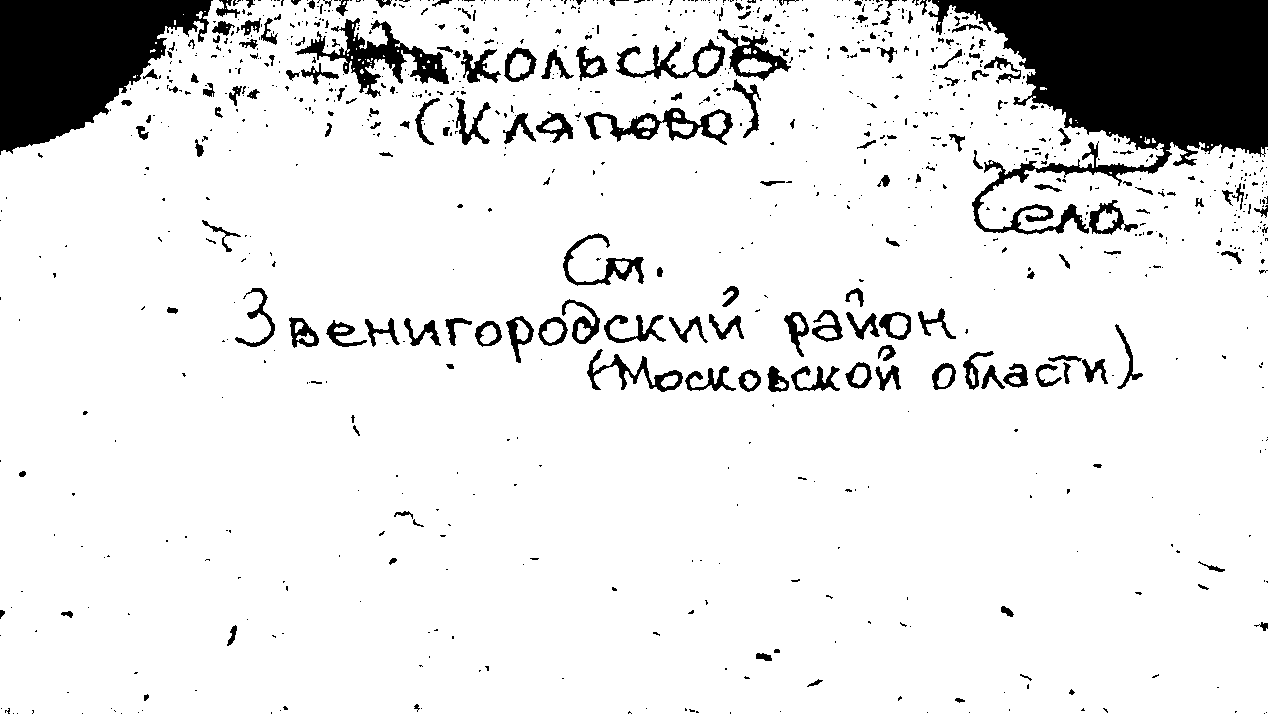 Никольское
(Кляпово)
Село
См.
Звенигородский район
(Московской области).